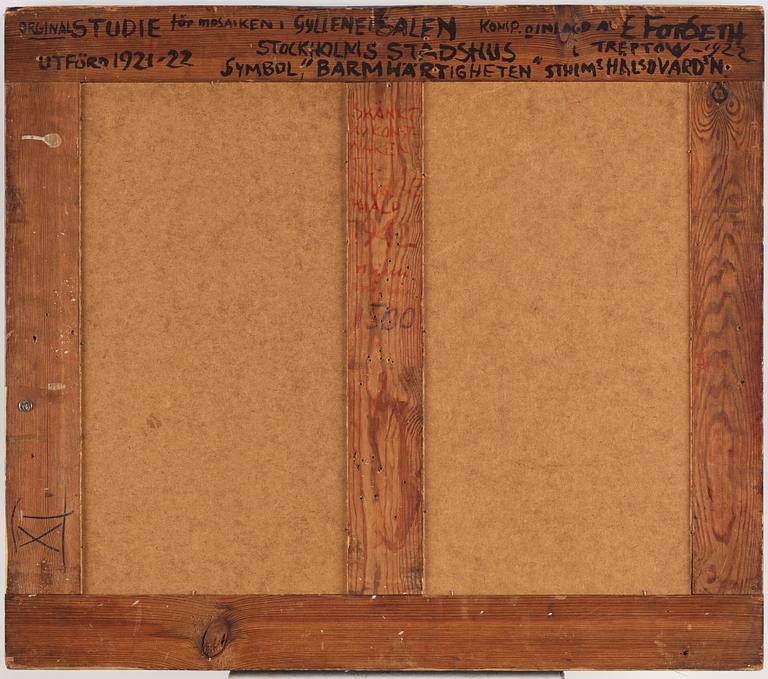 ORGINAL STUDIE för MOSAIKEN I GYLLENE SALEN KOMP. O INLAGD AV E FORSETH
STOCKHOLMS STADSHUS I TREPTOW - 1922
UTFÖRD 1921-22
SYMBOL, "BARMHÄRTIGHETEN" STHLMS HÄLSOVÅRDS N.
SKÄNKT
AV KONST
NÄREN
1942
1500
XI